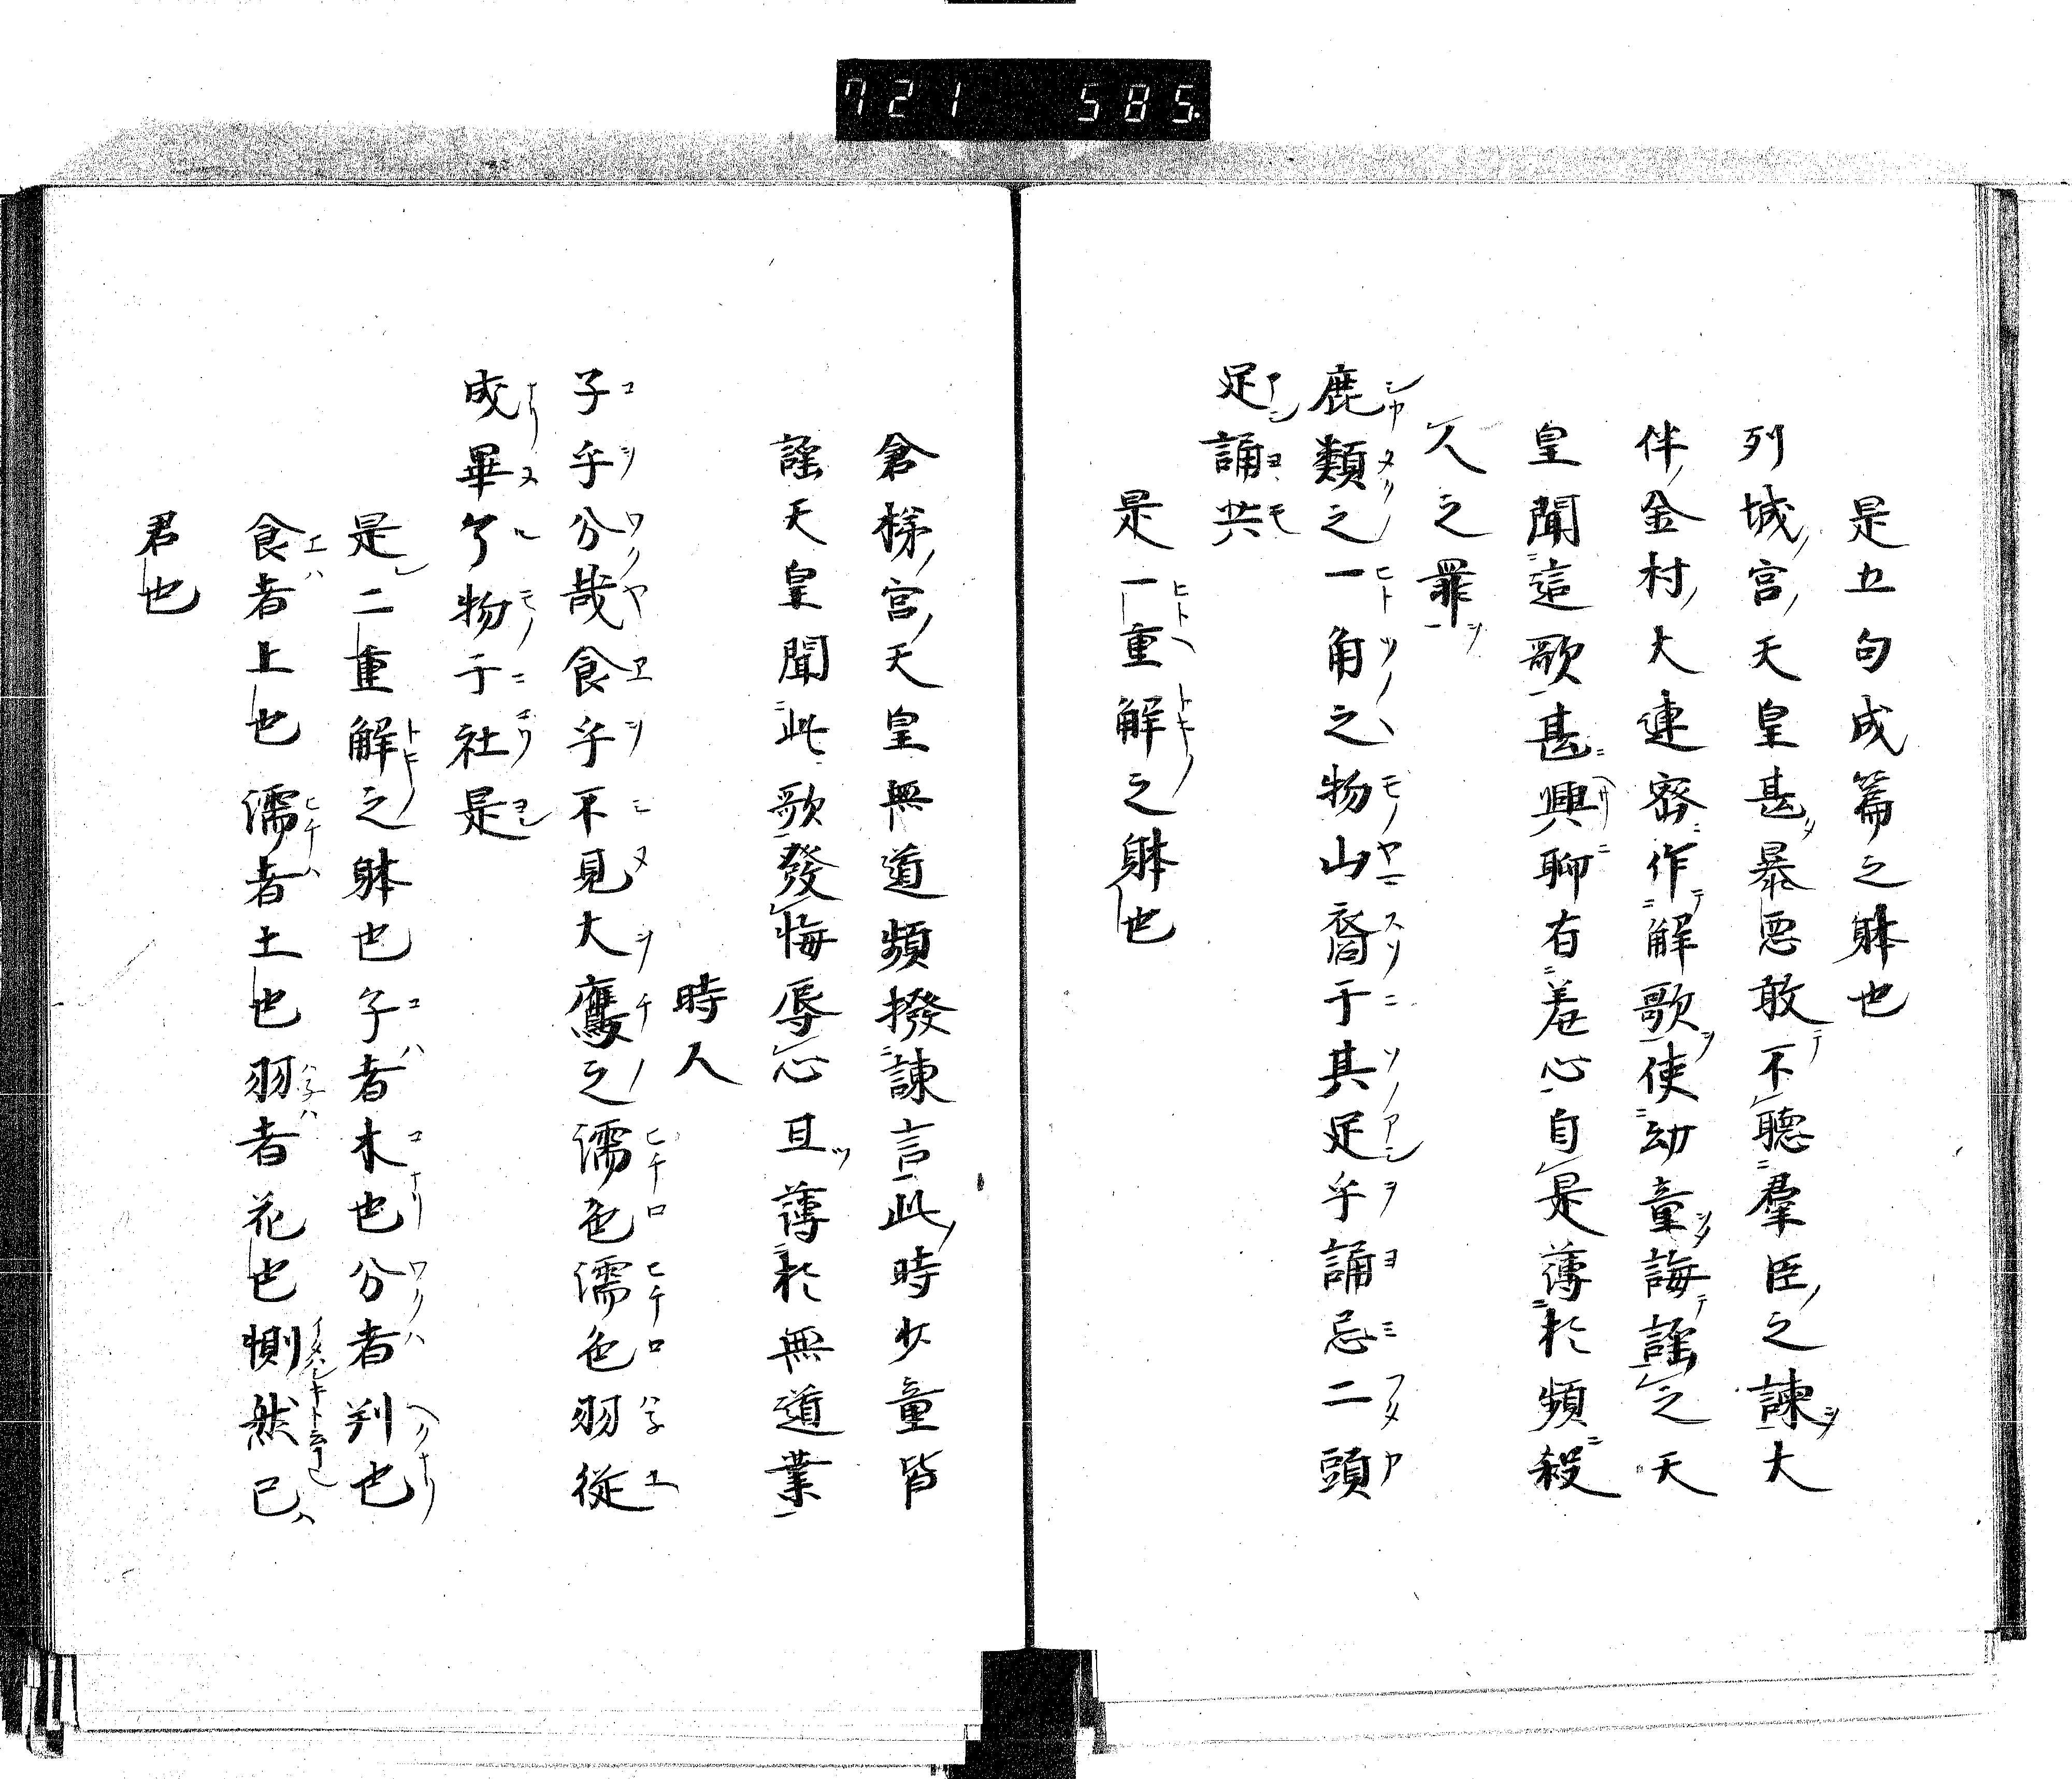 721 585
是五句成篇之躰也
列城宮天皇甚暴悪敢不聽羣臣之諫大
伴金村大連密作解歌使幼童誨謡之天
皇聞這歌甚興聊有羞心自是薄於頻殺
人之罪
鹿類之一角之物山裔于其足乎誦忌二頭
足誦共
是一重解之躰也
倉梯宮天皇無道頻撥諫言此時少童皆
謡天皇聞此歌發悔辱心且薄於無道業
時人
子乎分哉食乎不見大鷹之濡色濡色羽從
成畢了物于社是
是二重解之躰也子者木也分者判也
食者上也濡者土也羽者花也惻然已
君也